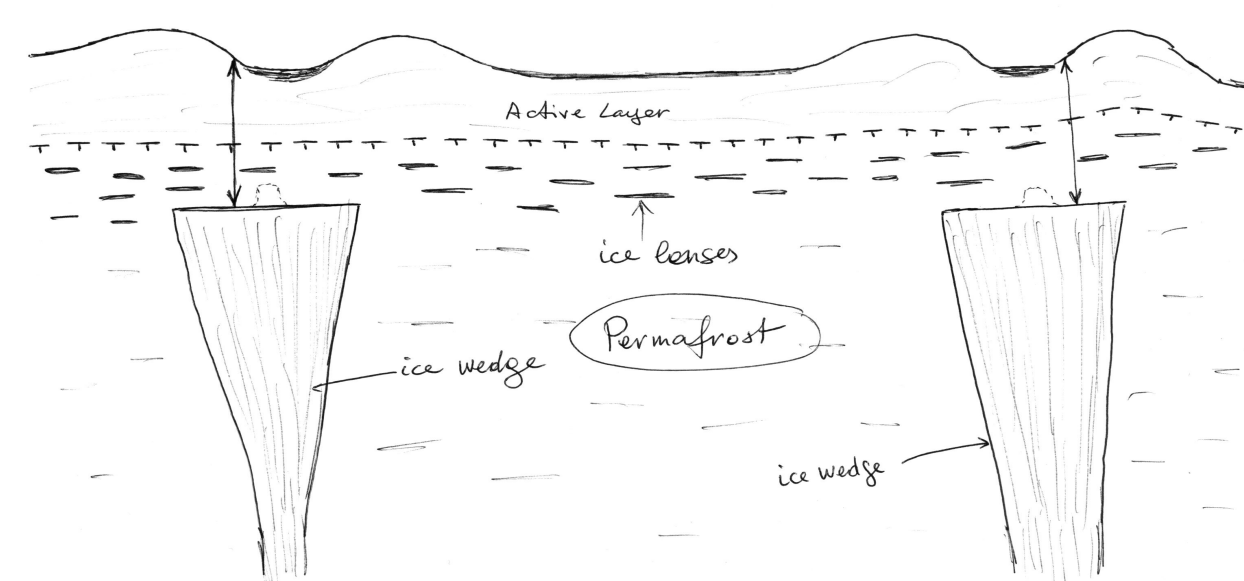 Active Layer
ice lenses
Permafrost
ice wedge
ice wedge